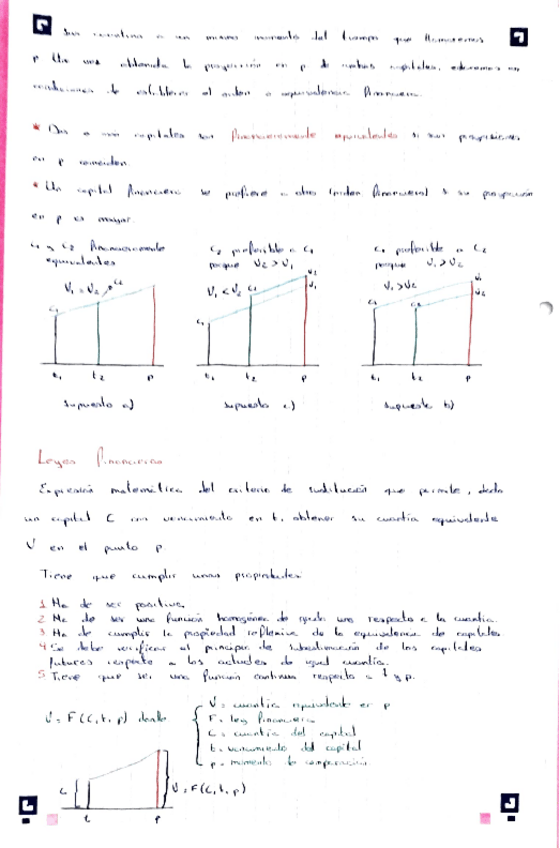 a un mismo momento del tiempo que llamaremos
p Una vez obtenida la proyección en p de ambos capitales, estaremos en
condiciones de establecer el orden o equivalencia financiera.
* Dos o más capitales son financieramente equivalentes si sus proyecciones
en p coinciden.
* Un capital financiero se prefiere a otro (orden financiero) si su proyección
en p es mayor.
C1 y C2 financieramente
equivalentes
V1 = V2
C2
C1
t1 t2 p
supuesto a)
C2 preferible a C1
porque V2 > V1
V1 < V2
C2
V2
V1
C1
t1 t2 p
supuesto c)
C1 preferible a C2
porque V1 > V2
V1 > V2
V1
V2
C1 C2
t1 t2 p
supuesto b)
Leyes financieras
Expresión matemática del criterio de sustitución que permite, dado
un capital C con vencimiento en t, obtener su cuantía equivalente
V en el punto p
Tiene que cumplir unas propiedades
1 Ha de ser positiva.
2 Ha de ser una función homogénea de grado uno respecto a la cuantía.
3 Ha de cumplir la propiedad reflexiva de la equivalencia de capitales
4 Se debe verificar el principio de subestimación de los capitales
futuros respecto a los actuales de igual cuantía.
5 Tiene que ser una función continua respecto a t y p.
V = F(C, t, p) donde
V = cuantía equivalente en p
F = ley financiera
C = cuantía del capital
t = vencimiento del capital
p = momento de comparación
C
V = F(C, t, p)
t p